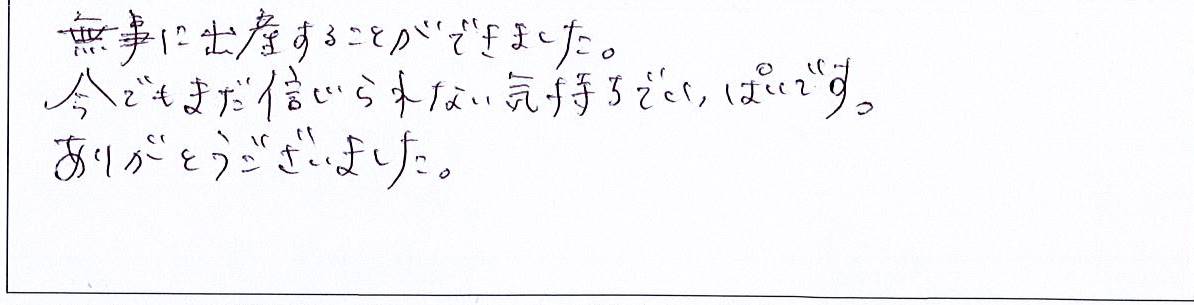 無事に出産することができました。
今でもまだ信じられない気持ちでいっぱいです。
ありがとうございました。